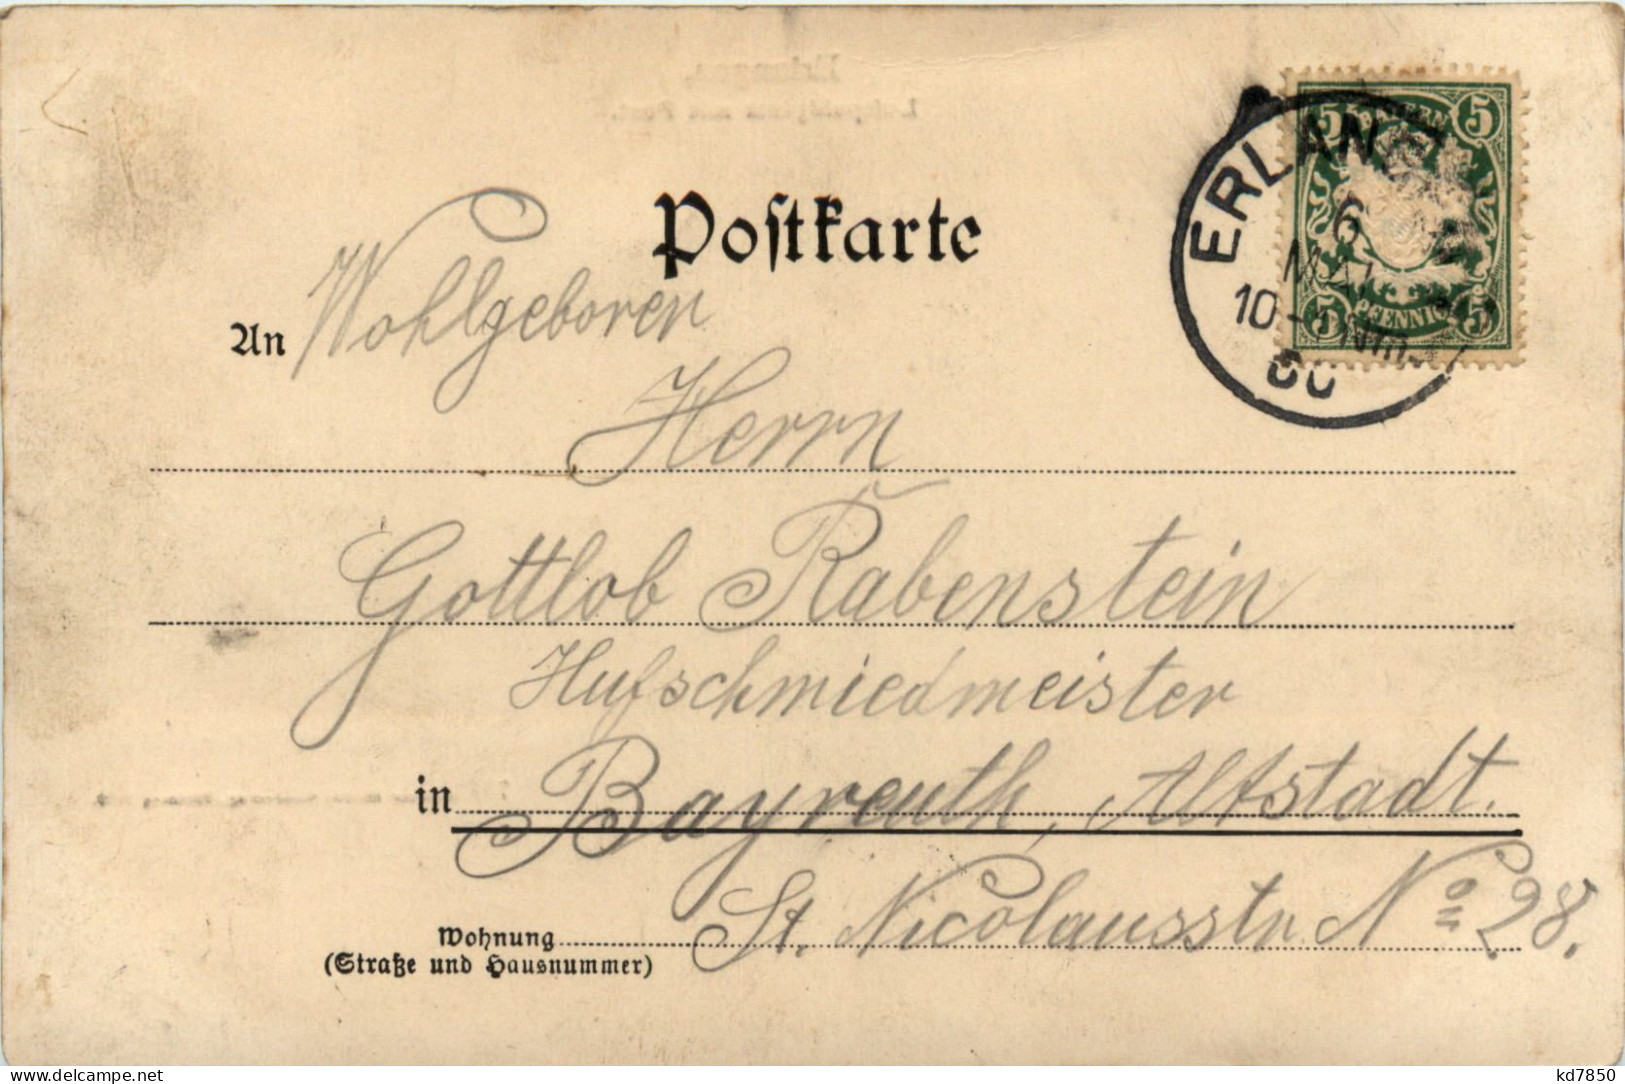 Postkarte
BAYERN
5 5
ERLANGEN
6
MAI
10-11 Nm.
00
5 PFENNIG 5
An Wohlgeboren
Herrn
Gottlob Rabenstein
Hufschmiedmeister
in Bayreuth, Altstadt.
Wohnung St. Nicolausstr No 28.
(Straße und Hausnummer)
kd7850